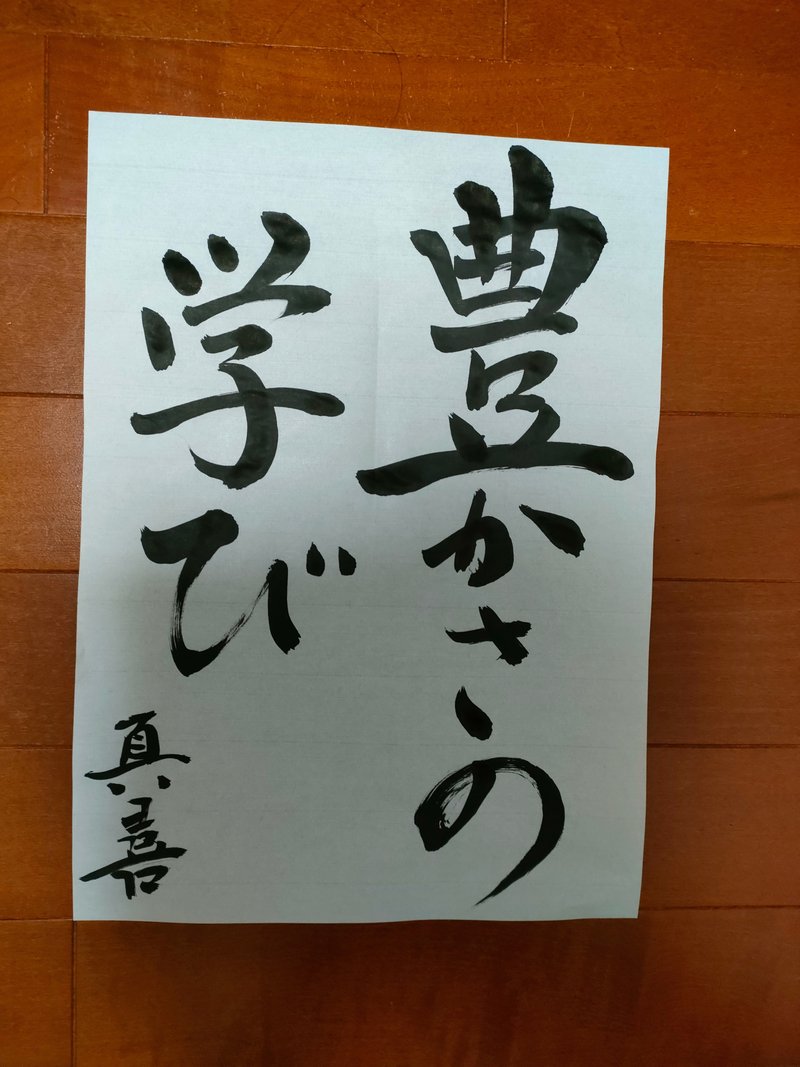 豊かさの
学び
真喜